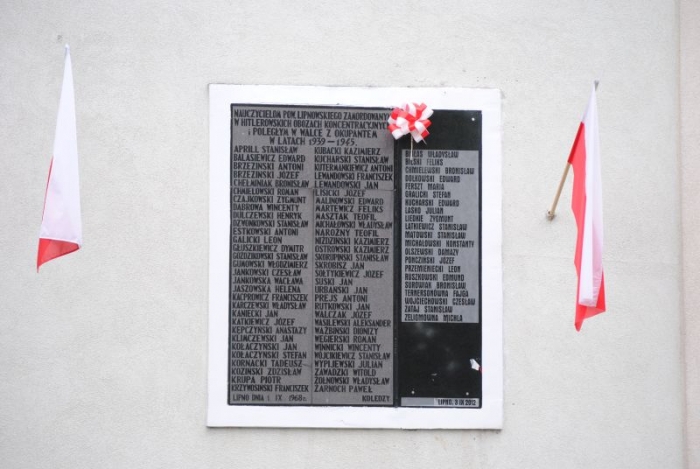 NAUCZYCIELOM POW. LIPNOWSKIEGO ZAMORDOWANYM
W HITLEROWSKICH OBOZACH KONCENTRACYJNYCH
I POLEGŁYM W WALCE Z OKUPANTEM
W LATACH 1939-1945.
APRILL STANISŁAW
BALASIEWICZ EDWARD
BRZEZIŃSKI ANTONI
BRZEZIŃSKI JÓZEF
CHEŁMINIAK BRONISŁAW
CHMIELOWSKI ROMAN
CZAJKOWSKI ZYGMUNT
DĄBROWA WINCENTY
DULCZEWSKI HENRYK
DZWONKOWSKI STANISŁAW
ESTKOWSKI ANTONI
GALICKI LEON
GŁUSZKIEWICZ DYMITR
GUZDZIKOWSKI STANISŁAW
JANKOWSKI CZESŁAW
JANKOWSKA WACŁAWA
JASZOWSKA HELENA
KACPROWICZ FRANCISZEK
KARCZEWSKI WŁADYSŁAW
KANIECKI JAN
KATKIEWICZ JÓZEF
KEPCZYŃSKI ANASTAZY
KLIMCZEWSKI JAN
KOŁACZYŃSKI JAN
KOŁACZYŃSKI STEFAN
KORNACKI TADEUSZ
KOZIŃSKI ZDZISŁAW
KRUPA PIOTR
KRZYWOSIŃSKI FRANCISZEK
KUBACKI KAZIMIERZ
KUCHARSKI STANISŁAW
KUTERMANKIEWICZ ANTONI
LEWANDOWSKI FRANCISZEK
LEWANDOWSKI JAN
ILSICKI JÓZEF
MALINOWSKI EDWARD
MARTEWICZ FELIKS
MASZTAK TEOFIL
MICHAŁOWSKI WŁADYSŁAW
NAROŻNY TEOFIL
NIŹDZIŃSKI KAZIMIERZ
OSTROWSKI KAZIMIERZ
SKORUPIŃSKI STANISŁAW
SKROBUSZ JAN
SOŁTYKIEWICZ JÓZEF
SUSKI JAN
URBAŃSKI JAN
PREJS ANTONI
RUTKOWSKI JAN
WALCZAK JÓZEF
WASILEWSKI ALEKSANDER
WAŻBIŃSKI DIONIZY
WĘGIERSKI ROMAN
WINNICKI WINCENTY
WÓJCIKIEWICZ STANISŁAW
WYPIJEWSKI JULIAN
ZAWADZKI WITOLD
ŻOŁNOWSKI WŁADYSŁAW
ŻARNOCH PAWEŁ
LIPNO DNIA 1. IX. 1968 r. KOLEDZY
WŁADYSŁAW
BILSKI FELIKS
CHMIELEWSKI BRONISŁAW
DOŁKOWSKI EDWARD
FERSZT MARIA
GRALICKI STEFAN
KUCHARSKI EDWARD
LASKO JULIAN
LIEDKE ZYGMUNT
ŁATKIEWICZ STANISŁAW
MATOWSKI STANISŁAW
MICHAŁOWSKI KONSTANTY
OLSZEWSKI DAMAZY
PORCZYŃSKI JÓZEF
PRZEMIENIECKI LEON
RUSZKOWSKI EDMUND
SUROWIAK BRONISŁAW
FAJGA
WOJCIECHOWSKI CZESŁAW
ZATAJ STANISŁAW
ŻELIGMANÓWNA MICHLA
LIPNO,